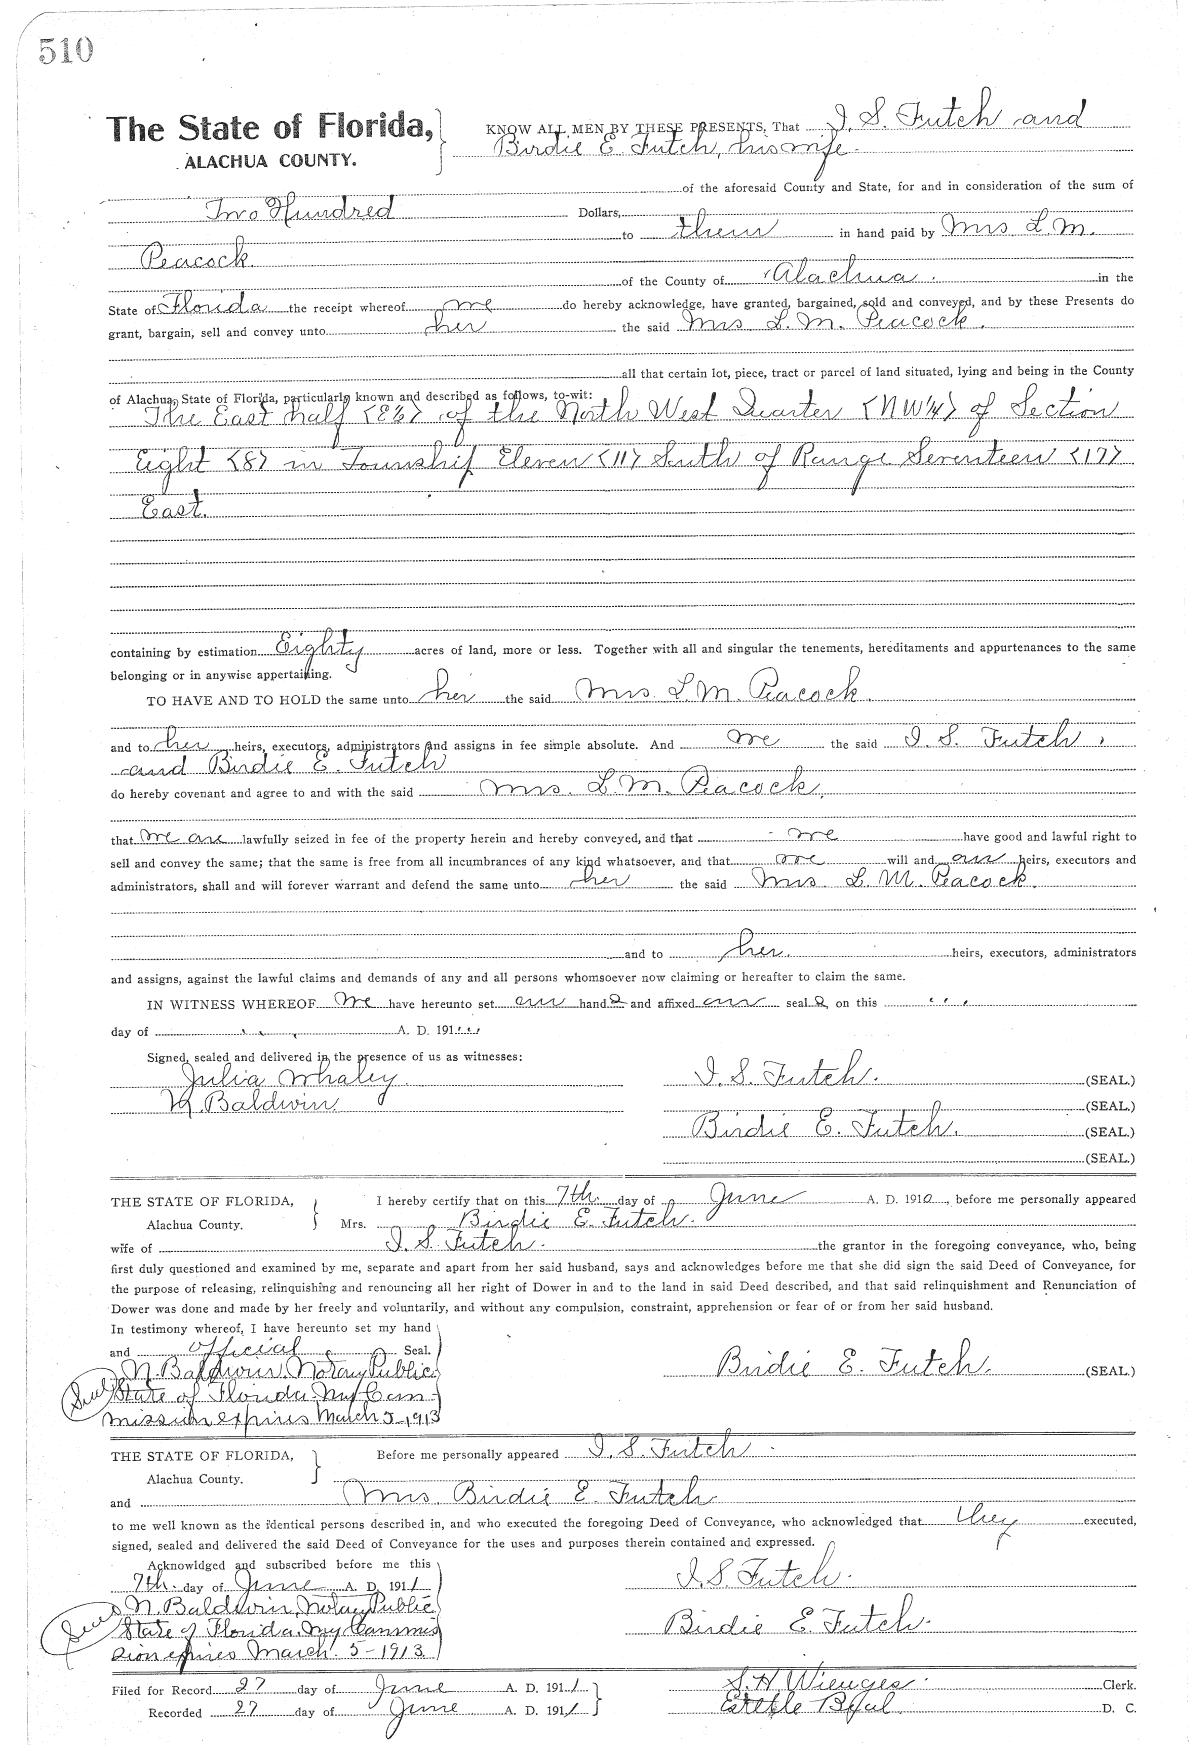 510
The State of Florida, KNOW ALL MEN BY THESE PRESENTS, That I. S. Futch and
ALACHUA COUNTY. Birdie E. Futch, his wife.
of the aforesaid County and State, for and in consideration of the sum of
Two Hundred Dollars,
to them in hand paid by Mrs L. M.
Peacock
of the County of Alachua. in the
State of Florida the receipt whereof we do hereby acknowledge, have granted, bargained, sold and conveyed, and by these Presents do
grant, bargain, sell and convey unto her the said Mrs L. M. Peacock.
all that certain lot, piece, tract or parcel of land situated, lying and being in the County
of Alachua, State of Florida, particularly known and described as follows, to-wit:
The East half <E½> of the North West Quarter <NW¼> of Section
Eight <8> in Township Eleven <11> South of Range Seventeen <17>
East.
containing by estimation Eighty acres of land, more or less. Together with all and singular the tenements, hereditaments and appurtenances to the same
belonging or in anywise appertaining.
TO HAVE AND TO HOLD the same unto her the said Mrs. L. M. Peacock.
and to her heirs, executors, administrators and assigns in fee simple absolute. And we the said I. S. Futch,
and Birdie E. Futch
do hereby covenant and agree to and with the said Mrs. L. M. Peacock,
that we are lawfully seized in fee of the property herein and hereby conveyed, and that we have good and lawful right to
sell and convey the same; that the same is free from all incumbrances of any kind whatsoever, and that we will and our heirs, executors and
administrators, shall and will forever warrant and defend the same unto her the said Mrs. L. M. Peacock.
and to her. heirs, executors, administrators
and assigns, against the lawful claims and demands of any and all persons whomsoever now claiming or hereafter to claim the same.
IN WITNESS WHEREOF We have hereunto set our hands and affixed our seals on this
day of A. D. 191
Signed, sealed and delivered in the presence of us as witnesses:
Julia Whaley. I. S. Futch. (SEAL.)
N. Baldwin. (SEAL.)
Birdie E. Futch. (SEAL.)
(SEAL.)
THE STATE OF FLORIDA, I hereby certify that on this 7th. day of June A. D. 1910, before me personally appeared
Alachua County. Mrs. Birdie E. Futch.
wife of I. S. Futch. the grantor in the foregoing conveyance, who, being
first duly questioned and examined by me, separate and apart from her said husband, says and acknowledges before me that she did sign the said Deed of Conveyance, for
the purpose of releasing, relinquishing and renouncing all her right of Dower in and to the land in said Deed described, and that said relinquishment and Renunciation of
Dower was done and made by her freely and voluntarily, and without any compulsion, constraint, apprehension or fear of or from her said husband.
In testimony whereof, I have hereunto set my hand
and official Seal.
N. Baldwin, Notary Public Birdie E. Futch. (SEAL)
Seal State of Florida. My Com-
mission expires March 5-1913
THE STATE OF FLORIDA, Before me personally appeared I. S. Futch.
Alachua County.
and Mrs. Birdie E. Futch
to me well known as the identical persons described in, and who executed the foregoing Deed of Conveyance, who acknowledged that they executed,
signed, sealed and delivered the said Deed of Conveyance for the uses and purposes therein contained and expressed.
Acknowldged and subscribed before me this
7th. day of June A. D. 1911 I. S. Futch.
N. Baldwin, Notary Public
Seal State of Florida. My Commis Birdie E. Futch.
sion expires March. 5-1913
Filed for Record 27 day of June A. D. 1911 S. H. Wienges. Clerk.
Recorded 27 day of June A. D. 1911 D. C.